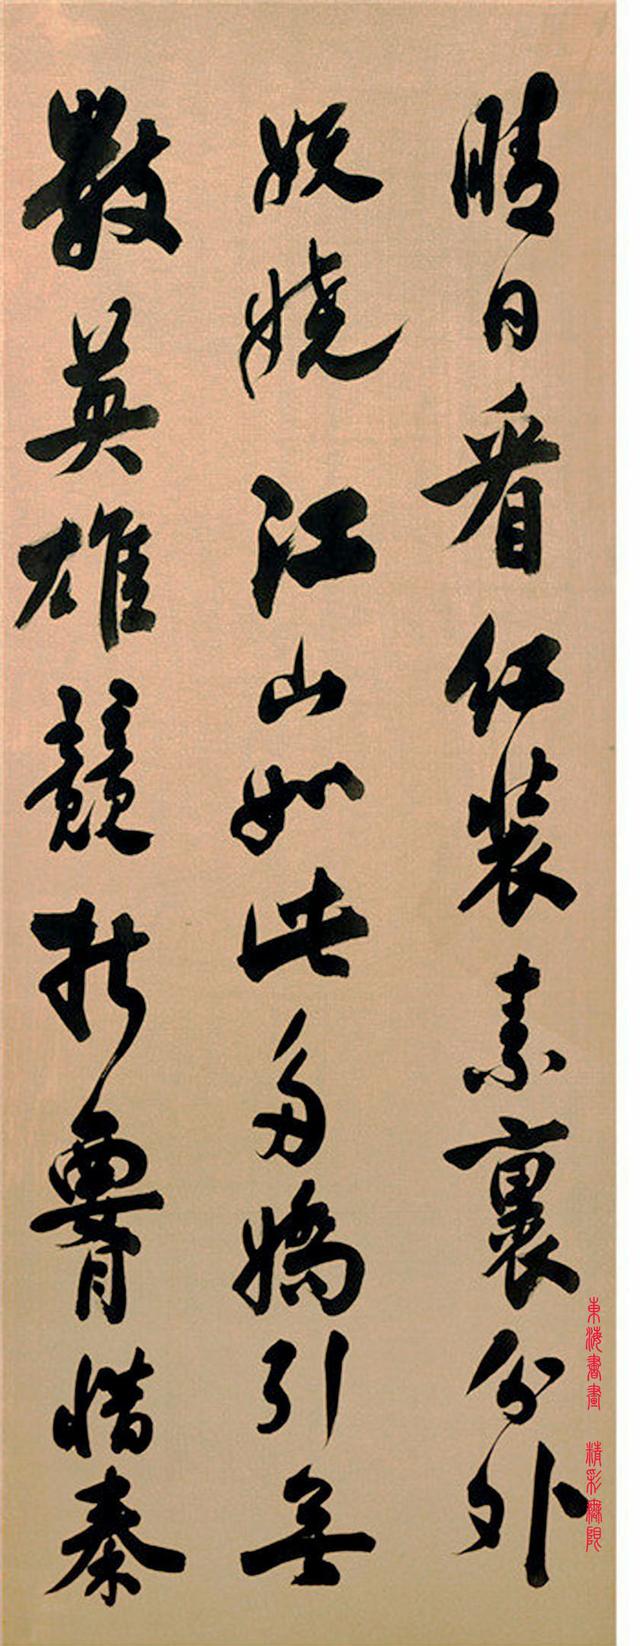 晴日看红装素裹分外
妖娆江山如此多娇引无
数英雄竞折腰惜秦
東海書畫 精彩無限